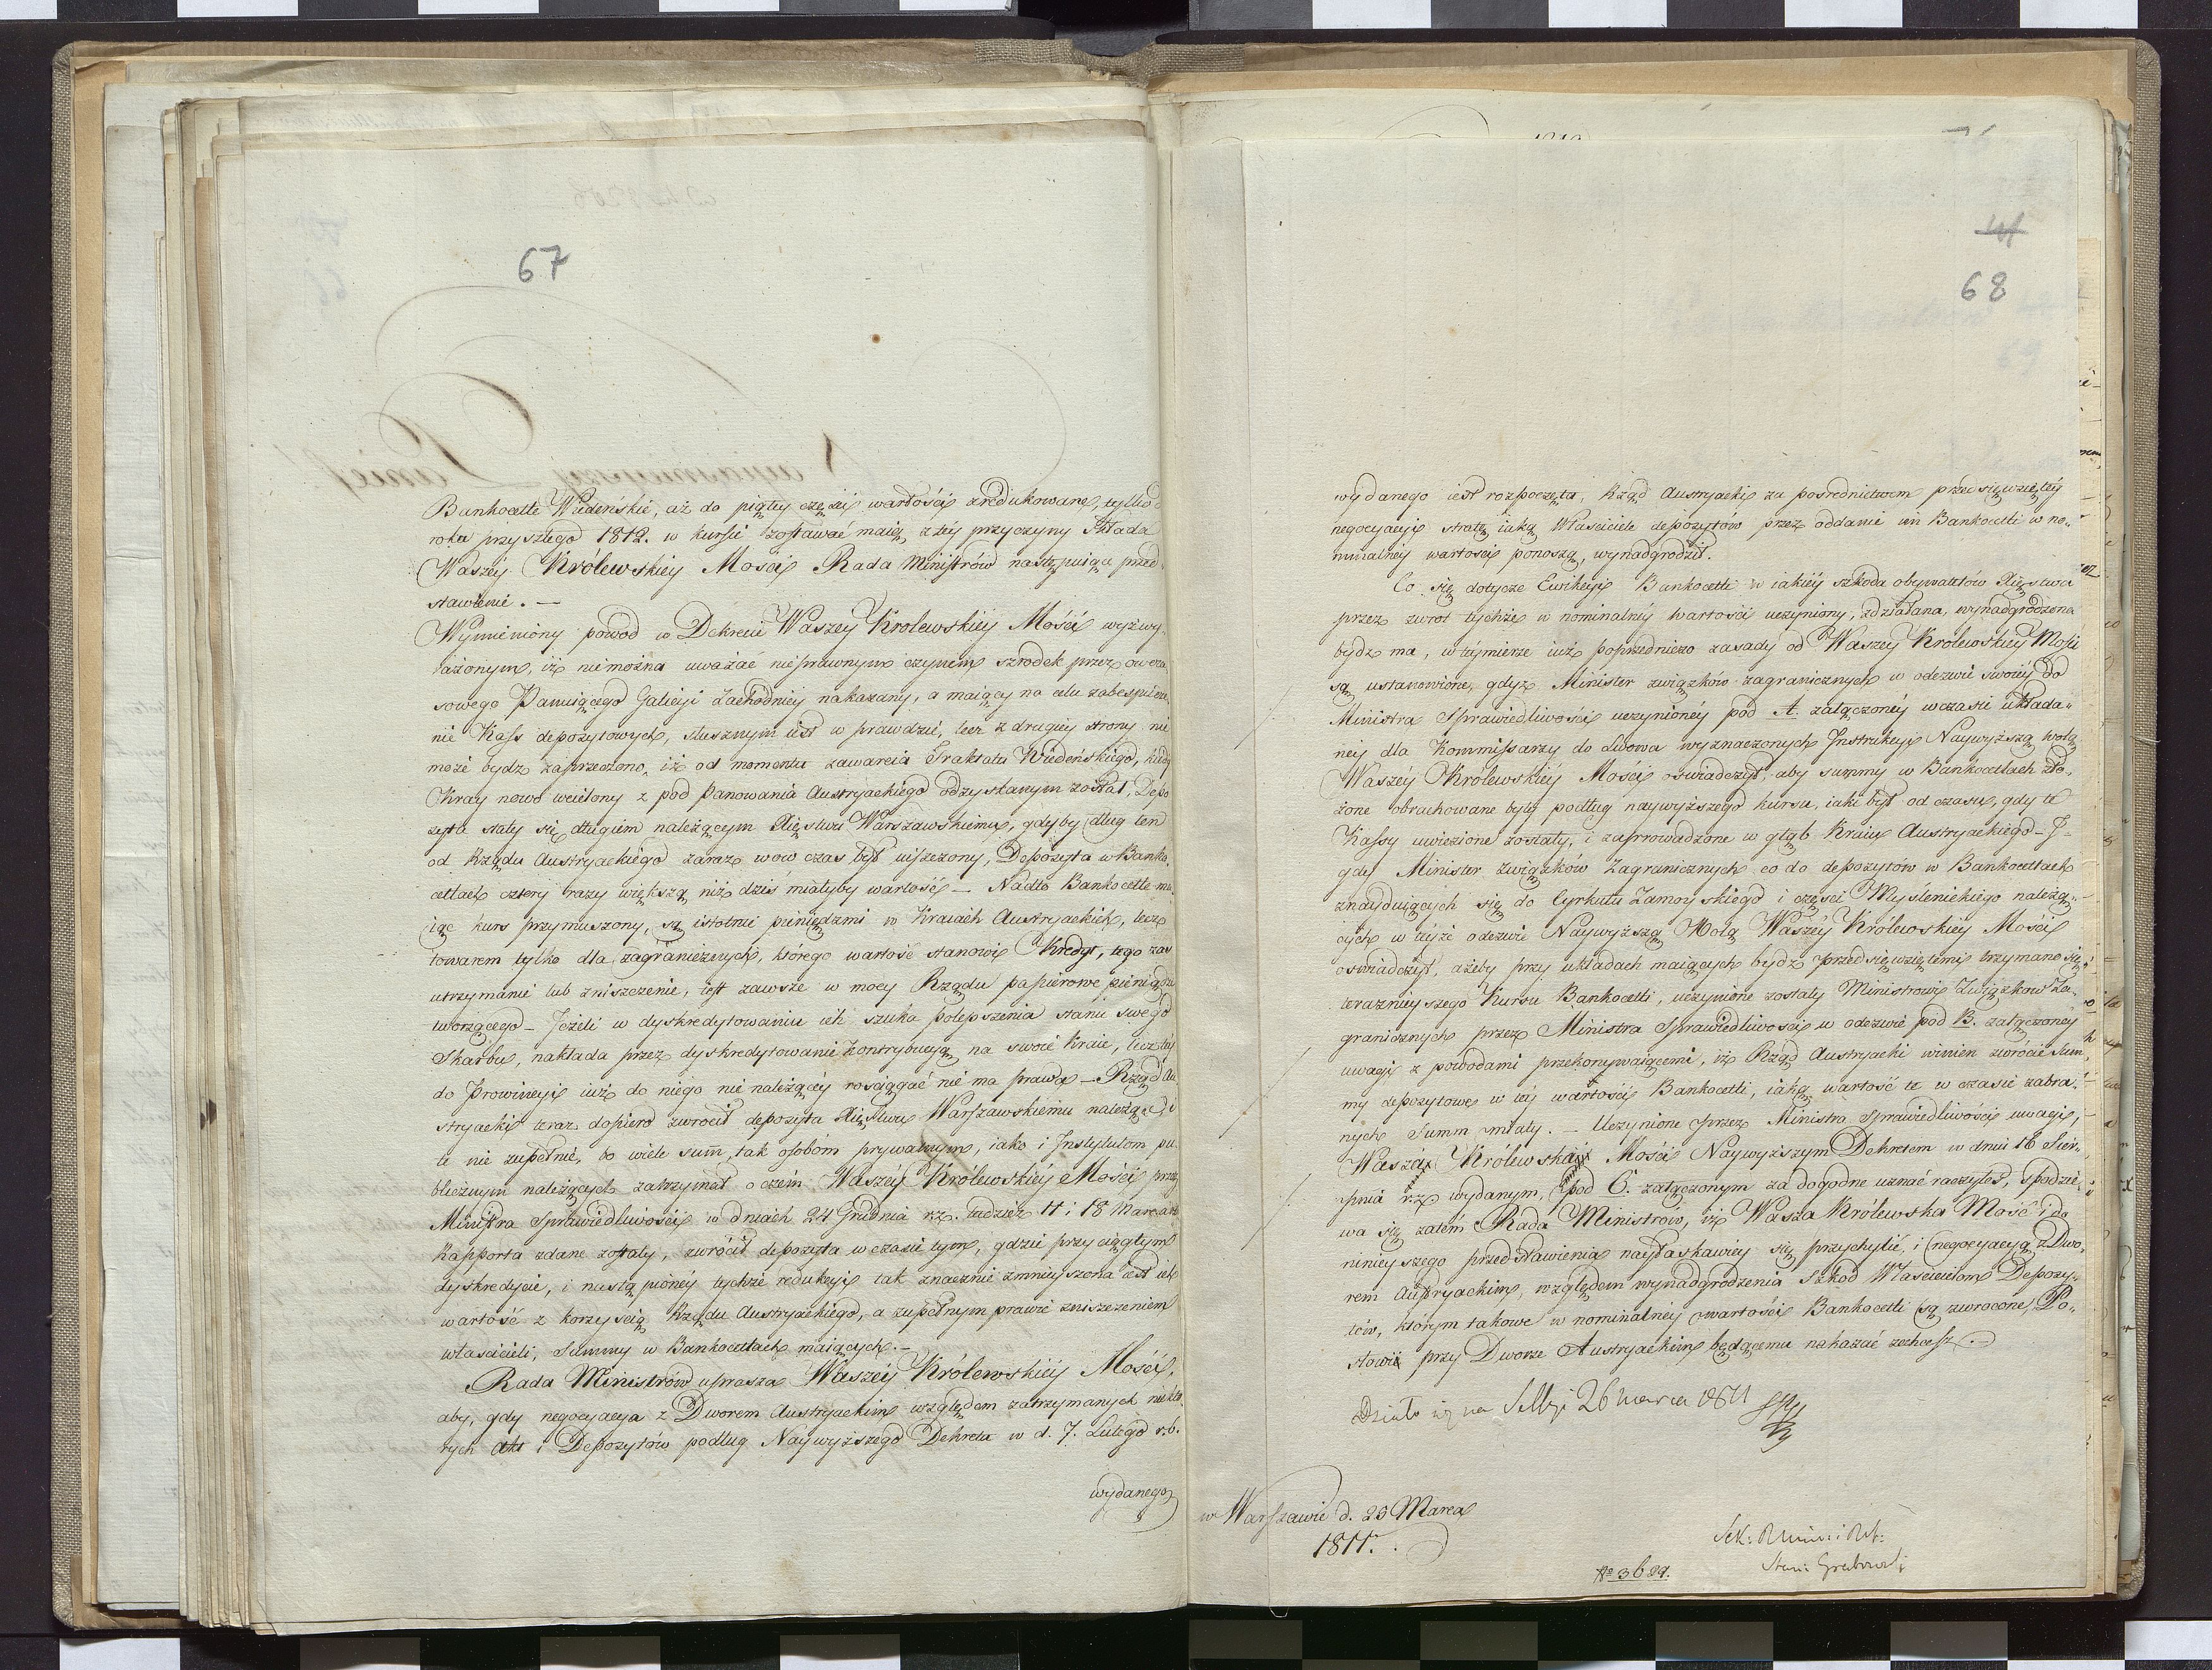 67
Bankocetle Wiedeńskie, aż do piątey części wartości zredukowane, tylko do
roku przyszłego 1812. w kursie zostawać maią, z téy przyczyny składa
Waszéy Królewskiéy Mości Rada Ministrów następuiące przed
stawienie. —
Wymieniony powod w Dekrecie Waszey Krolewskiéy Mości wyżwy-
rażonym, iż niemożna uważać niesprawnym czynem szrodek przez owcza-
sowego Panuiącego Galicyi Zachodniéy nakazany, a maiący na celu zabespiecze-
nie Kass depozytowych, słusznym iest w prawdzie, lecz z drugiéy strony nie
może bydz zaprzeczono, iż od momentu zawarcia Traktatu Wiedeńskiego, kiedy
Kray nowo wcielony z pod panowania Austryackiego odzyskanym został, Depo
zyta stały się długiem należącym Xięstwu Warszawskiemu, gdyby dług ten
od Rządu Austryackiego zaraz wow czas był uiszczony, Depozyta w Banko-
cetlach cztery razy większą niż dziś miałyby wartość — Nadto Bankocetle ma
iąc kurs przymuszony, są istotnie pieniędzmi w Kraiach Austryackich, lecz
towarem tylko dla zagranicznych, którego wartość stanowi Kredyt, tego zaś
utrzymanie lub zniszczenie, iest zawsze w mocy Rządu papierowe pieniądze
tworzącego — Jeżeli w dyskredytowaniu ich szuka polepszenia stanu swego
Skarbu, nakłada przez dyskredytowanie kontrybucyą na swoie Kraie, lecz téy
do Prowincyi iuż do niego nie należącéy rościągać nie ma prawa — Rząd Au
stryacki teraz dopiero zwrocił depozyta Xięstwu Warszawskiemu należące, i
te nie zupełnie, bo wiele summ, tak osobóm prywatnym, iako i Instytutom pu-
blicznym należących zatrzymał o czém Waszéy Królewskiéy Mości przez
Ministra Sprawiedliwości w dniach 24 Grudnia r. z. tudzież 11 i 18 Marca r.b.
Rapporta zdane zostały, zwrócił depozyta w czasie tym, gdzie przy ciągłym
dyskredycie, i nastąpionéy tychże redukcyi tak znacznie zmnieyszona iest ich
wartość z korzyścią Rządu Austryackiego, a zupełnym prawie zniszczeniem
właścicieli, Summy w Bankocetlach maiących. —
Rada Ministrów uprasza Waszéy Królewskiéy Mości,
aby, gdy negocyacya z Dworem Austryackim względem zatrzymanych niektó-
rych Akt i Depozytów podług Naywyższego Dekretu w d. 7. Lutego r. b.
wydanego
68
wydanego iest rozpoczęta, Rząd Austryacki za posrednictwem przedsięwziętéy
negocyacyi stratę iaką Właściciele depozytów przez oddanie im Bankocetli w no-
minalnéy wartości ponoszą, wynadgrodził.
Co się dotycze Ewikcyi Bankocetli w iakiéy szkoda obywatelów Xięstwa
przez zwrot tychże w nominalnéy wartości uczyniony, zdziałana, wynadgrodzona
bydz ma, w téymierze iuż poprzedniczo zasady od Waszey Królewskiéy Mości
są ustanowione, gdyż Minister związków zagranicznych w odezwie swoiéy do
Ministra Sprawiedliwości uczynionéy pod A. załączonéy w czasie układa-
néy dla Kommissarzy do Lwowa wyznaczonych Instrukcyi Naywyższą wolą
Waszéy Królewskiéy Mości oświadczył, aby summy w Bankocetlach zło-
żone obrachowane były podług naywyższego kursu, iaki był od czasu, gdy te
Kassy uwiezione zostały, i zaprowadzone w głąb Kraiu Austryackiego — J
gdy Minister Związków Zagranicznych co do depozytów w Bankocetlach
znayduiących się do Cyrkułu Zamoyskiego i części Myslenickiego należą-
cych w téyże odezwie Naywyższą Wolą Waszéy Królewskiéy Mości
oświadczył, ażeby przy układach maiących bydz przedsięwziętemi trzymano się
teraznieyszego Kursu Bankocetli, uczynione zostały Ministrowi Związków Za-
granicznych przez Ministra Sprawiedliwości w odezwie pod B. załączonéy
uwagi z powodami przekonywaiącemi, iż Rząd Austryacki winien zwrócić Sum-
my depozytowe w téy wartości Bankocetli, iaką wartość te w czasie zabra-
nych Summ miały. — Uczynione przez Ministra Sprawiedliwości uwagi,
Wasza Królewska Mość Naywyższym Dekretem w dniu 16 Sier-
pnia r. z. wydanym, pod C. załączonym za dogodne uznać raczyłeś, spodzie-
wa się zatém Rada Ministrów, iż Wasza Królewska Mość i do
ninieyszego przedstawienia nayłaskawiéy się przychylić, i negocyacyą z Dwo-
rem Austryackim, względem wynadgrodzenia Szkod Właścicielom Depozy-
tów, którym takowe w nominalnéy wartości Bankocetli są zwrocone, Po-
słowi przy Dworze Austryackim będącemu nakazać zechcesz. —
Działo się na Sessyi 26 Marca 1811
w Warszawie d. 25 Marca
1811.
Sek: R Min: i R St:
Stan: Grabowski
No 3689.